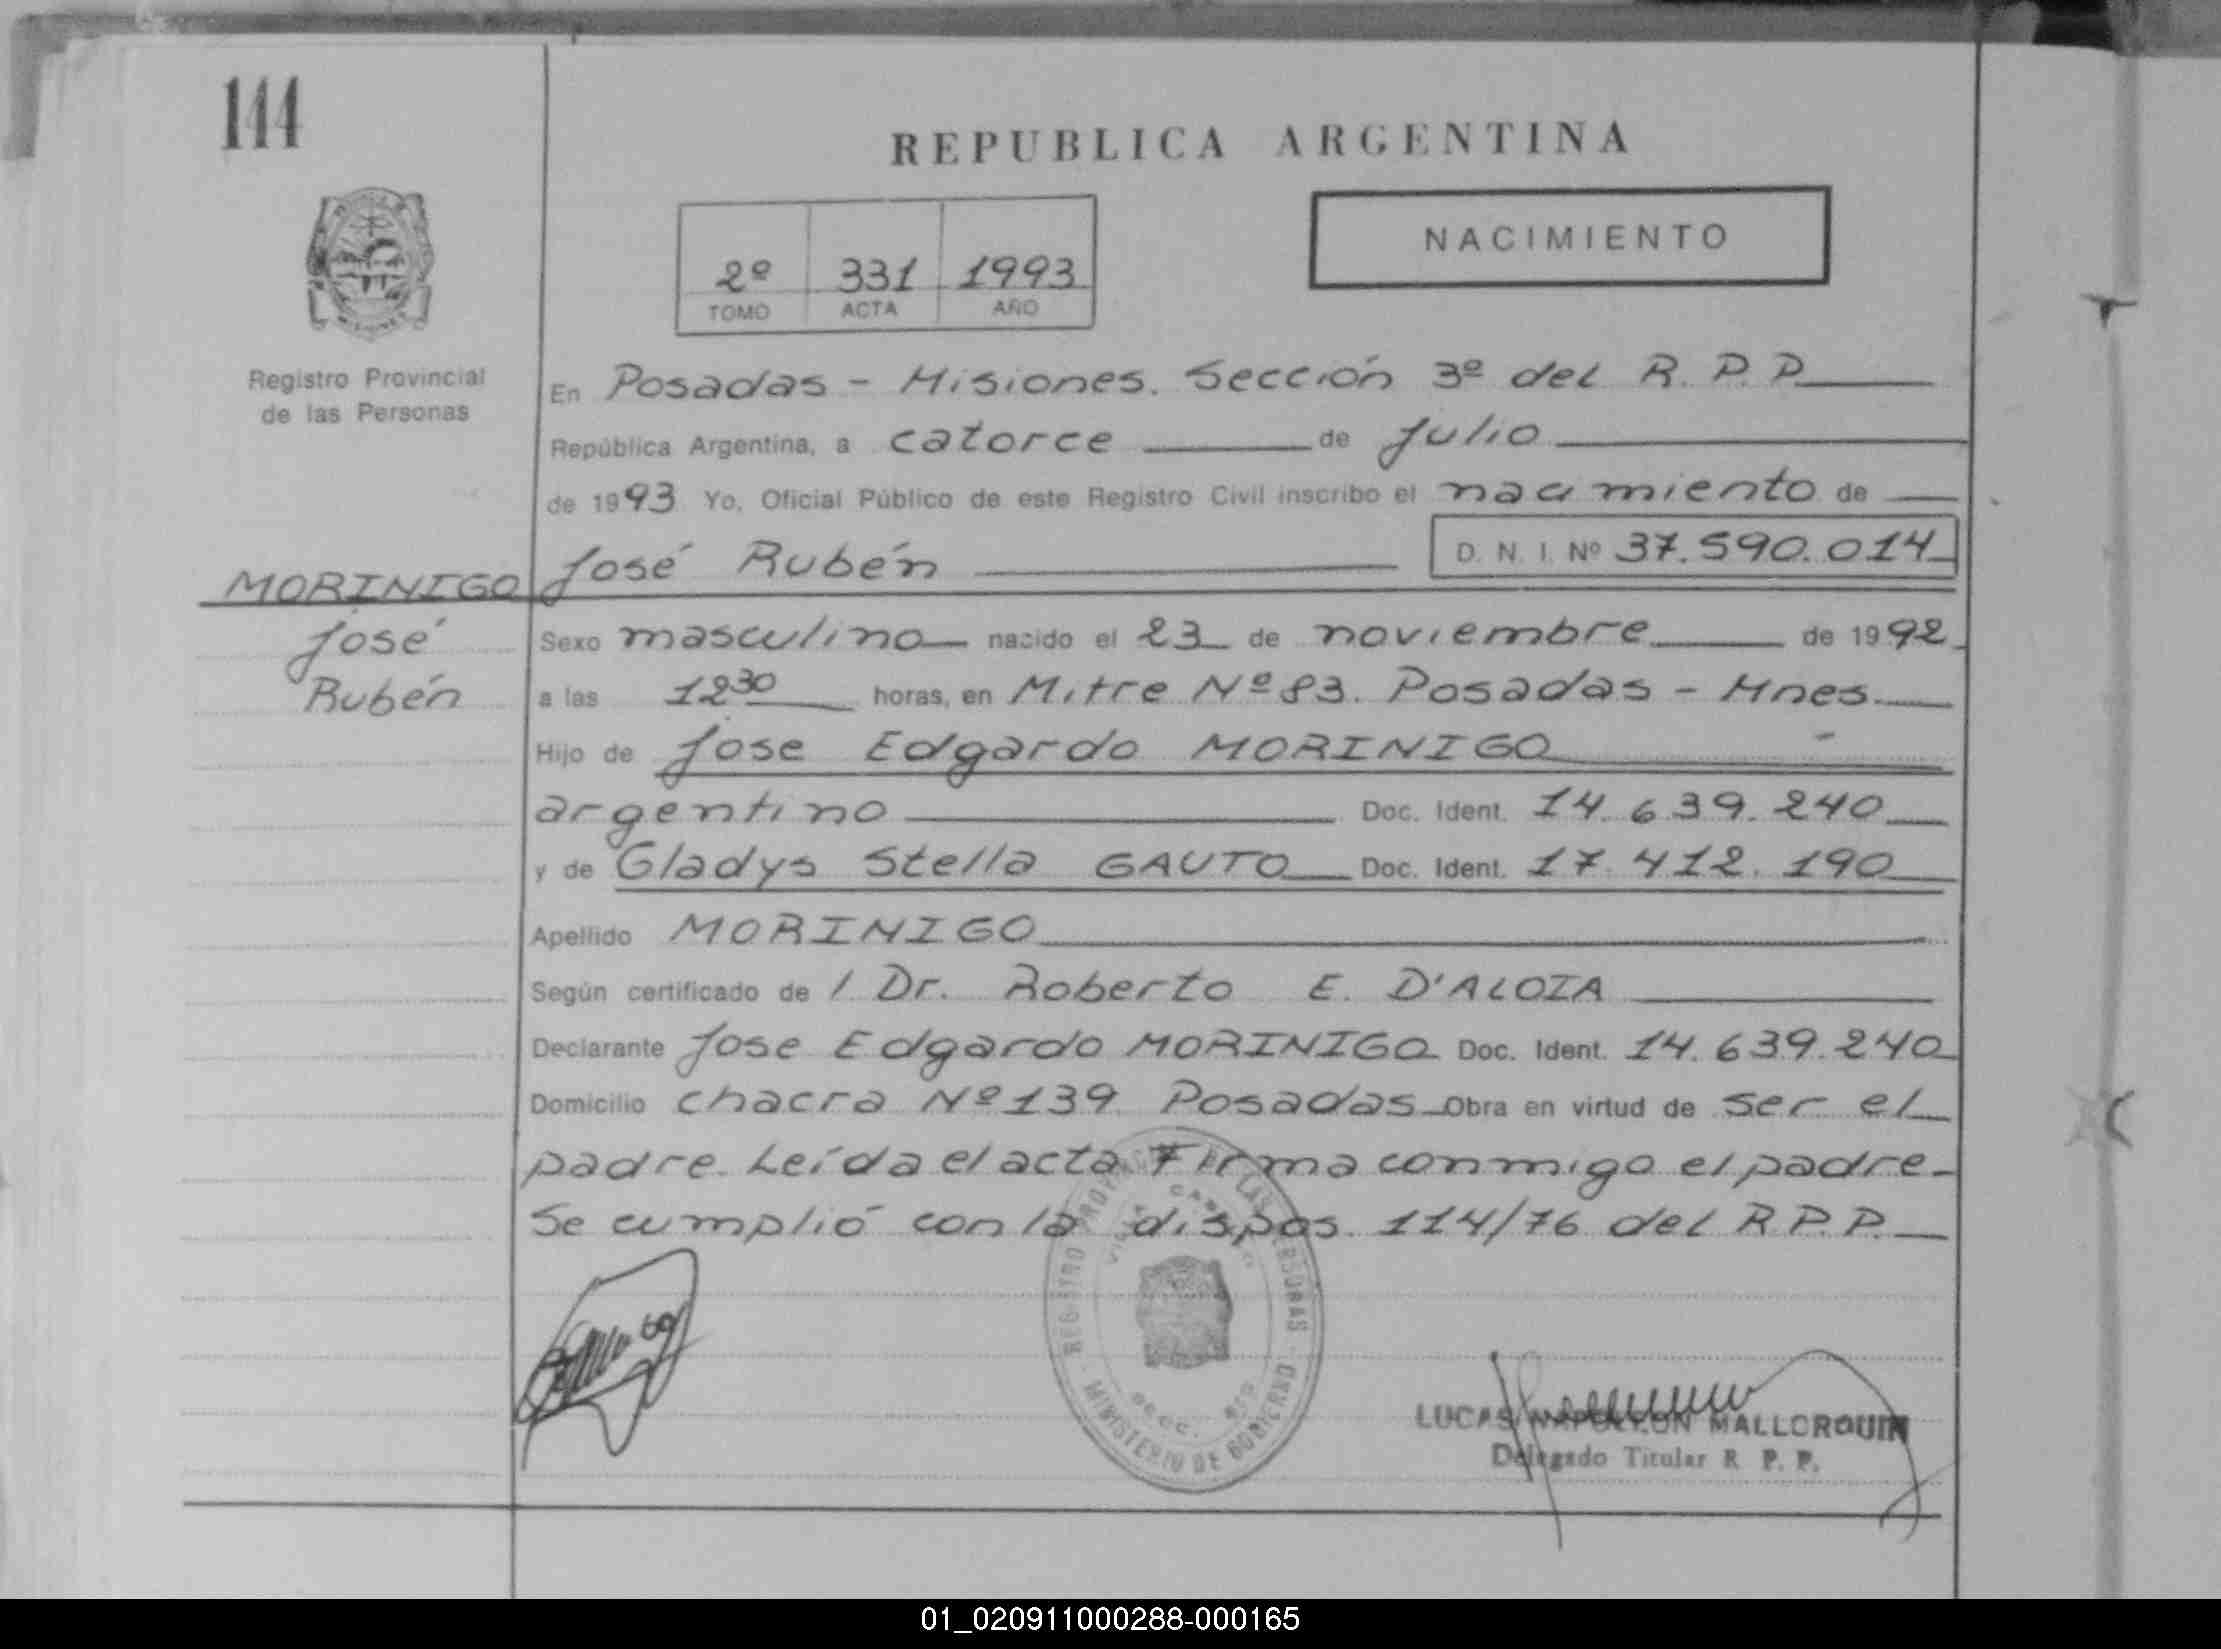 144
REPUBLICA ARGENTINA
NACIMIENTO
2º 331 1993
TOMO ACTA AÑO
Registro Provincial
de las Personas
En Posadas - Misiones. Sección 3º del R. P. P.
República Argentina, a catorce de julio
de 1993 Yo, Oficial Público de este Registro Civil inscribo el nacimiento de
José Rubén D. N. I. Nº 37.590.014
MORINIGO
José
Rubén
Sexo masculino nacido el 23 de noviembre de 1992
a las 12 30 horas, en Mitre Nº 83. Posadas - Mnes.
Hijo de Jose Edgardo MORINIGO
argentino Doc. Ident. 14.639.240
y de Gladys Stella GAUTO Doc. Ident. 17.412.190
Apellido MORINIGO
Según certificado de / Dr. Roberto E. D'ALOIA
Declarante Jose Edgardo MORINIGO Doc. Ident. 14.639.240
Domicilio chacra Nº 139 Posadas Obra en virtud de ser el
padre. Leída el acta Firma conmigo el padre
Se cumplió con la dispos. 114/76 del R.P.P.
REGISTRO PROVINCIAL DE LAS PERSONAS
MINISTERIO DE GOBIERNO
LUCAS NAPOLEON MALLORQUIN
Delegado Titular R. P. P.
01_020911000288-000165